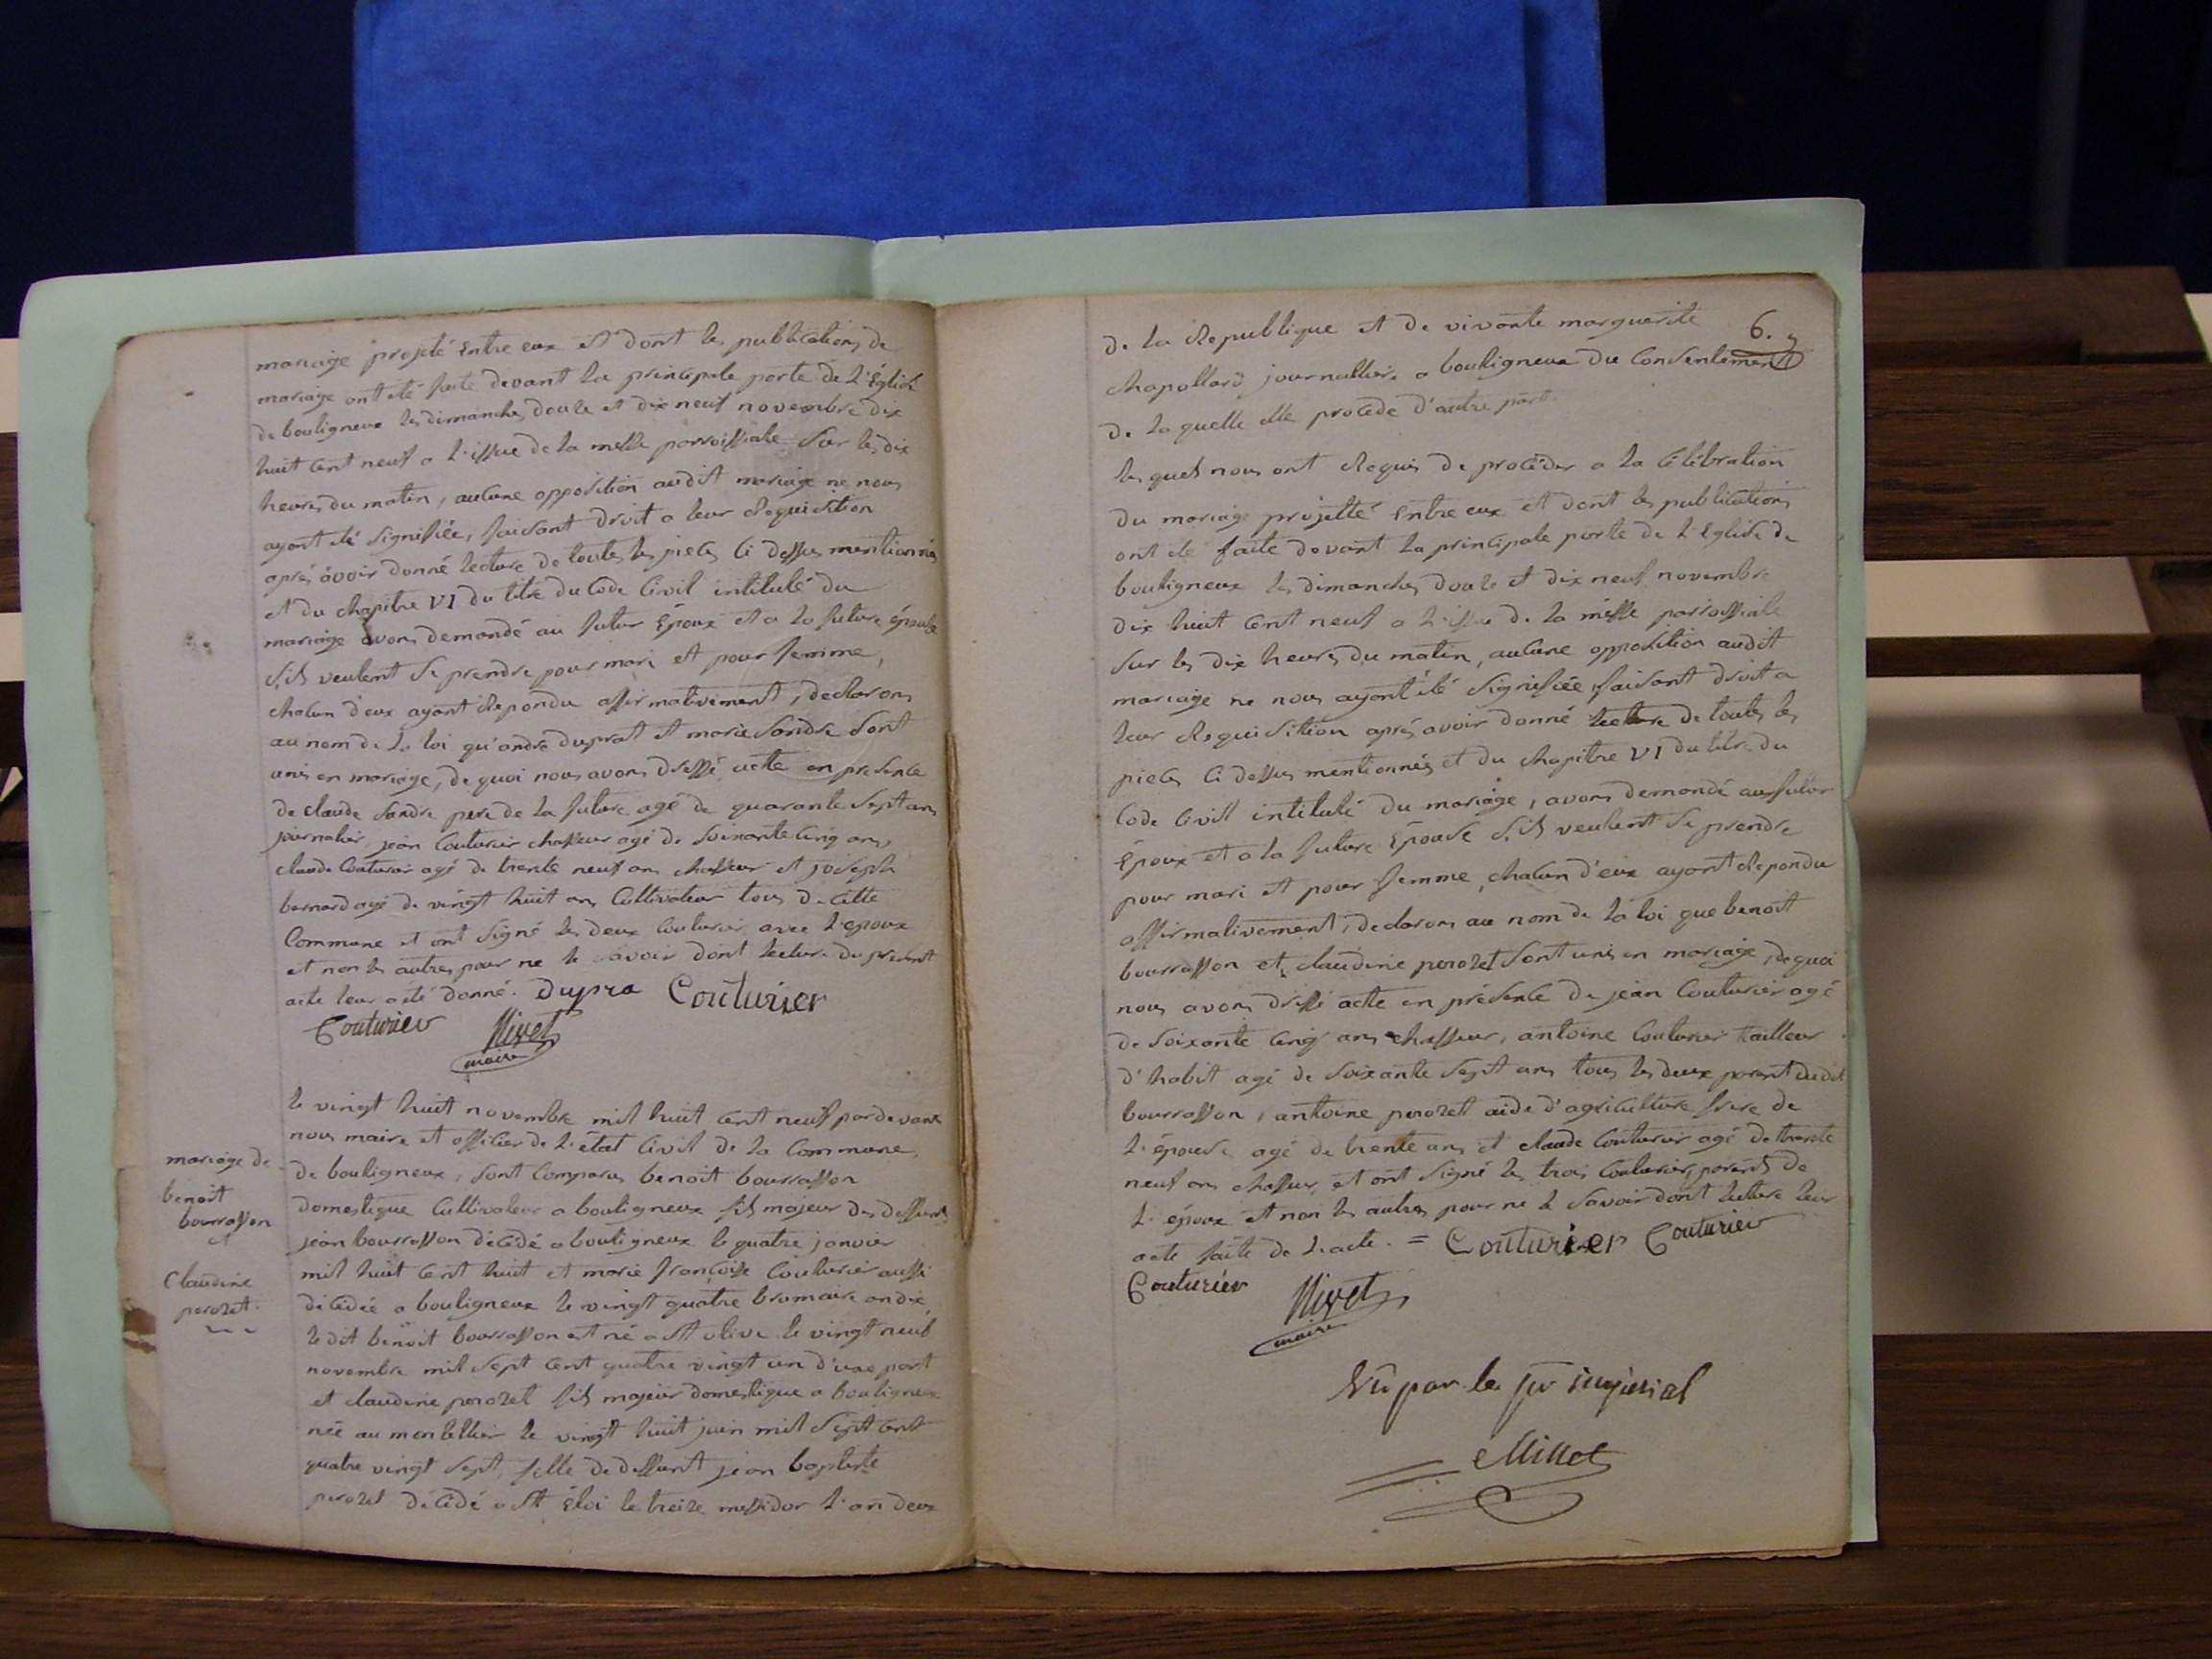 mariage projeté Entre eux et dont les publications de
mariage ont été faite devant la principale porte de l'Église
de bouligneux les dimanches douze et dix neuf novembre dix
huit cent neuf a l'issue de la messe parroissiale sur les dix
heures du matin, aucune opposition audit mariage ne nous
ayant été signifiée, faisant droit a leur Requisition
après avoir donné lecture de toutes les pieces ci dessus mentionnés
et du chapitre VI du titre du Code Civil intitulé du
mariage avons demandé au futur Époux et a la future épouse
s'ils veulent se prendre pour mari et pour femme,
chacun d'eux ayant Repondu affirmativement, declarons
au nom de la loi qu'andré duprat et marie Sandre sont
unis en mariage, de quoi nous avons dressé acte en presence
de claude Sandre pere de la future agé de quarante sept ans
journalier, jean Couturier chasseur agé de soixante cinq ans,
claude Couturier agé de trente neuf ans chasseur et joseph
bernard agé de vingt huit ans Cultivateur tous de cette
Commune et ont signé les deux Couturier avec l'epoux
et non les autres pour ne le savoir dont lecture du present
acte leur a été donné. Dupra Couturier
Couturier Nivet
maire
le vingt huit novembre mil huit cent neuf pardevant
nous maire et officier de l'état Civil de la Commune
de bouligneux, sont Comparus benoit bourrasson
domestique Cultivateur a bouligneux fils majeur des deffunts
jean bourrasson décédé a bouligneux le quatre janvier
mil huit cent huit et marie françoise Couturier aussi
décédée a bouligneux le vingt quatre brumaire an dix
le dit benoit bourrasson et né a St olive le vingt neuf
novembre mil sept cent quatre vingt un d'une part
et claudine perozet fils majeur domestique a bouligneux
née au montellier le vingt huit juin mil sept cent
quatre vingt sept, fille de deffunt jean baptiste
perozet décédé a St Éloi le treize messidor l'an deux
mariage de
benoit
bourrasson
et
Claudine
perozet.
6.
de la Republique et de vivante marguerite
chapollard journalliere a bouligneux du Consentement
de la quelle elle procede d'autre part.
les quels nous ont Requis de procéder a la Célébration
du mariage projetté Entre eux et dont les publications
ont été faite devant la principale porte de l'Eglise de
bouligneux les dimanches douze et dix neuf novembre
dix huit cent neuf a l'issue de la messe parroissiale
sur les dix heures du matin, aucune opposition audit
mariage ne nous ayant été signifiée, faisant droit a
leur Requisition après avoir donné lecture de toutes les
pieces ci dessus mentionnés et du chapitre VI du titre du
Code Civil intitulé du mariage, avons demandé au futur
Époux et a la future Épouse s'ils veulent se prendre
pour mari et pour femme, chacun d'eux ayant Repondu
affirmativement, declarons au nom de la loi que benoit
bourrasson et claudine perozet sont unis en mariage, de quoi
nous avons dressé acte en présence de jean Couturier agé
de soixante cinq ans chasseur, antoine Couturier tailleur
d'habit agé de soixante sept ans tous les deux parent dudit
bourrasson, antoine perozet aide d'agriculture frere de
l'épouse agé de trente ans et claude Couturier agé de trente
neuf ans chasseur, et ont signé les trois Couturier, parents de
l'époux et non les autres pour ne le savoir dont lecture leur
acte faite de l'acte. = Couturier Couturier
Couturier Nivet
maire
Vû par le pr impérial
Millet